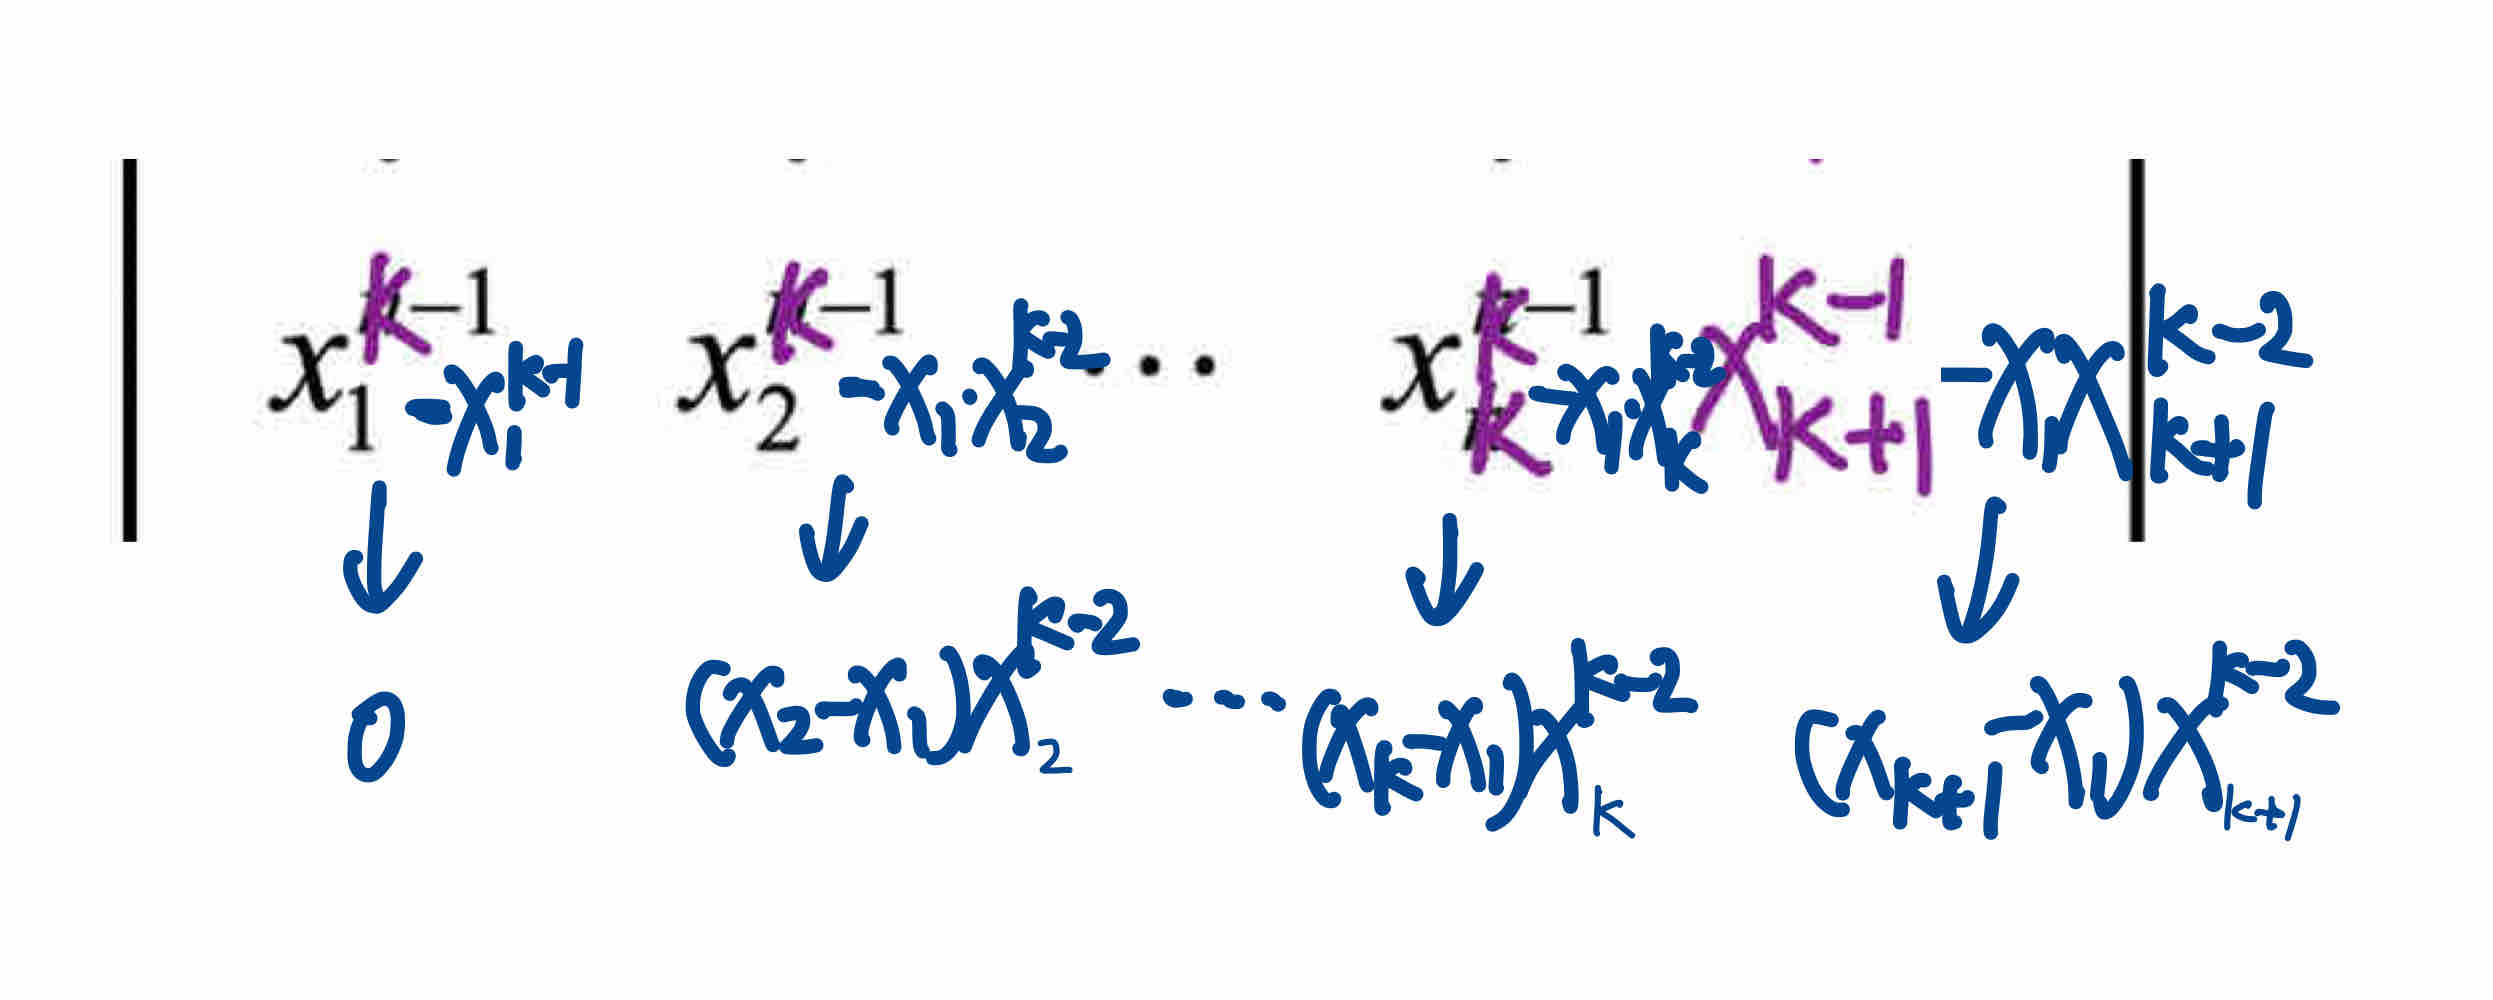 x₁^{k-1} - x₁^{k-1} x₂^{k-1} - x₁·x₂^{k-2} ··· x_k^{k-1} - x₁·x_k^{k-2} x_{k+1}^{k-1} - x₁x_{k+1}^{k-2}
↓ ↓ ↓ ↓
0 (x₂-x₁)x₂^{k-2} ···· (x_k-x₁)x_k^{k-2} (x_{k+1}-x₁)x_{k+1}^{k-2}